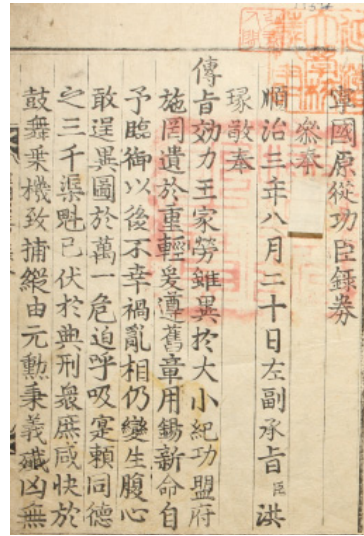 寧國原從功臣錄券
叅奉
順治三年八月二十日左副承旨臣洪
瑑敬奉
傳旨効力王家勞雖異於大小紀功盟府
施罔遺於重輕爰遵舊章用錫新命自
予臨御以後不幸禍亂相仍變生腹心
敢逞異圖於萬一危迫呼吸寔賴同德
之三千渠魁已伏於典刑衆庶咸快於
鼓舞乗機致捕縱由元勳秉義殲凶無